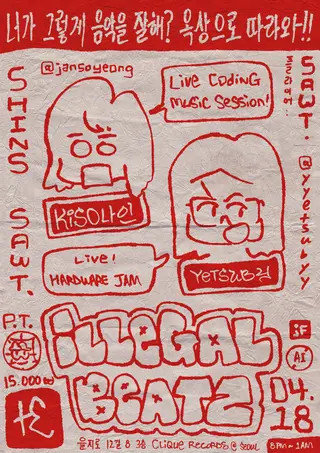 니가 그렇게 음악을 잘해? 옥상으로 따라와!!
@jansoyeong
SHINS SAWT.
Live CODiNG
MUSIC SESSION!
SAWT.
@yyetsubyy
KiSO나인
Live!
HARDWARE JAM
YETSUB검
P.T.
15.000₩
iLLEGAL
BEATZ
3F
AI
04.
18
을지로 12길 8 3층 CLiQUE RECORDS @ Seoul
8PM~1AM